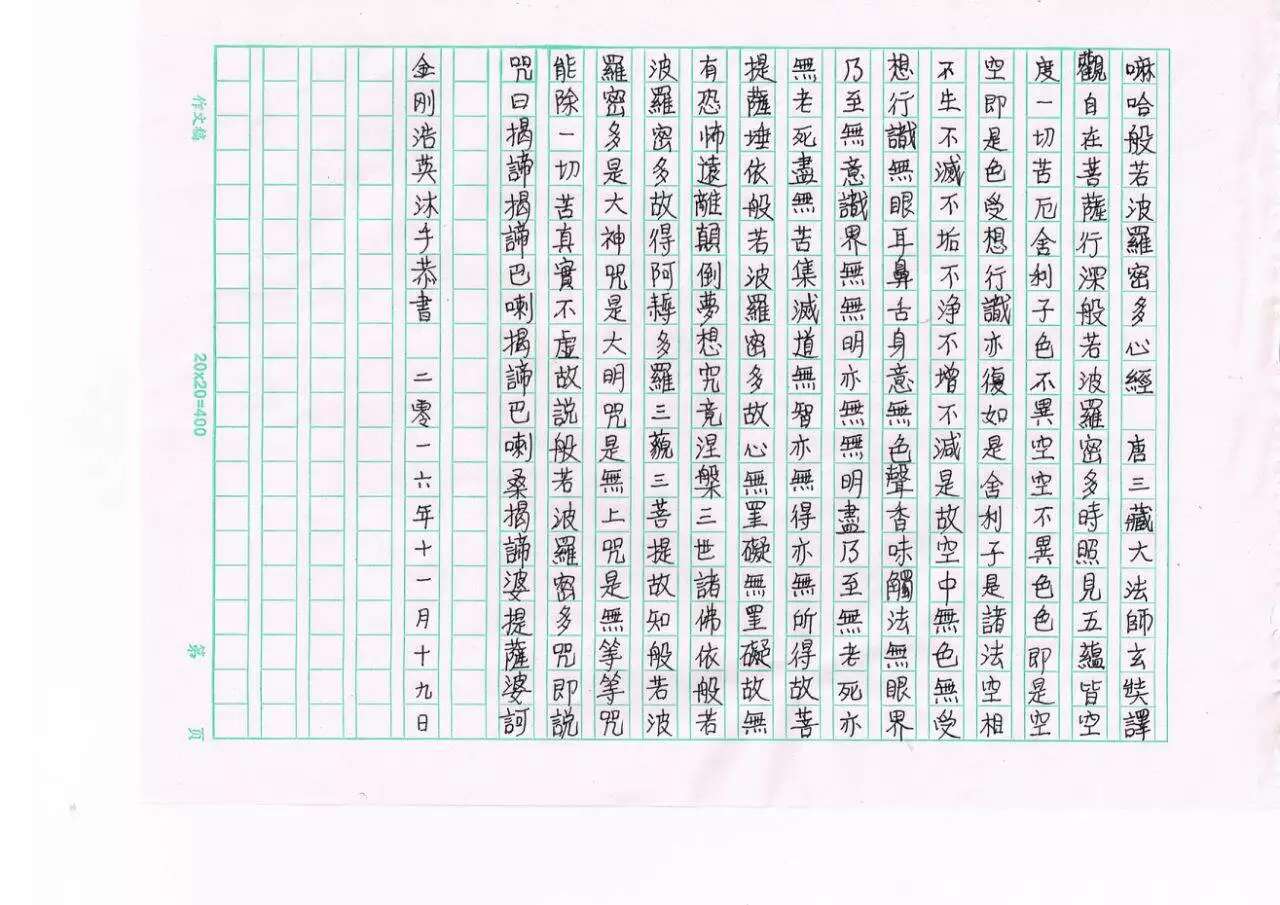 嘛哈般若波羅密多心經 唐三藏大法師玄奘譯
觀自在菩薩行深般若波羅密多時照見五蘊皆空
度一切苦厄舍利子色不異空空不異色色即是空
空即是色受想行識亦復如是舍利子是諸法空相
不生不滅不垢不淨不增不減是故空中無色無受
想行識無眼耳鼻舌身意無色聲香味觸法無眼界
乃至無意識界無無明亦無無明盡乃至無老死亦
無老死盡無苦集滅道無智亦無得亦無所得故菩
提薩埵依般若波羅密多故心無罣礙無罣礙故無
有恐怖遠離顛倒夢想究竟涅槃三世諸佛依般若
波羅密多故得阿耨多羅三藐三菩提故知般若波
羅密多是大神咒是大明咒是無上咒是無等等咒
能除一切苦真實不虛故說般若波羅密多咒即說
咒曰揭諦揭諦巴喇揭諦巴喇桑揭諦婆提薩婆訶
金剛浩英沐手恭書 二零一六年十一月十九日
作文稿 20x20=400 第 页